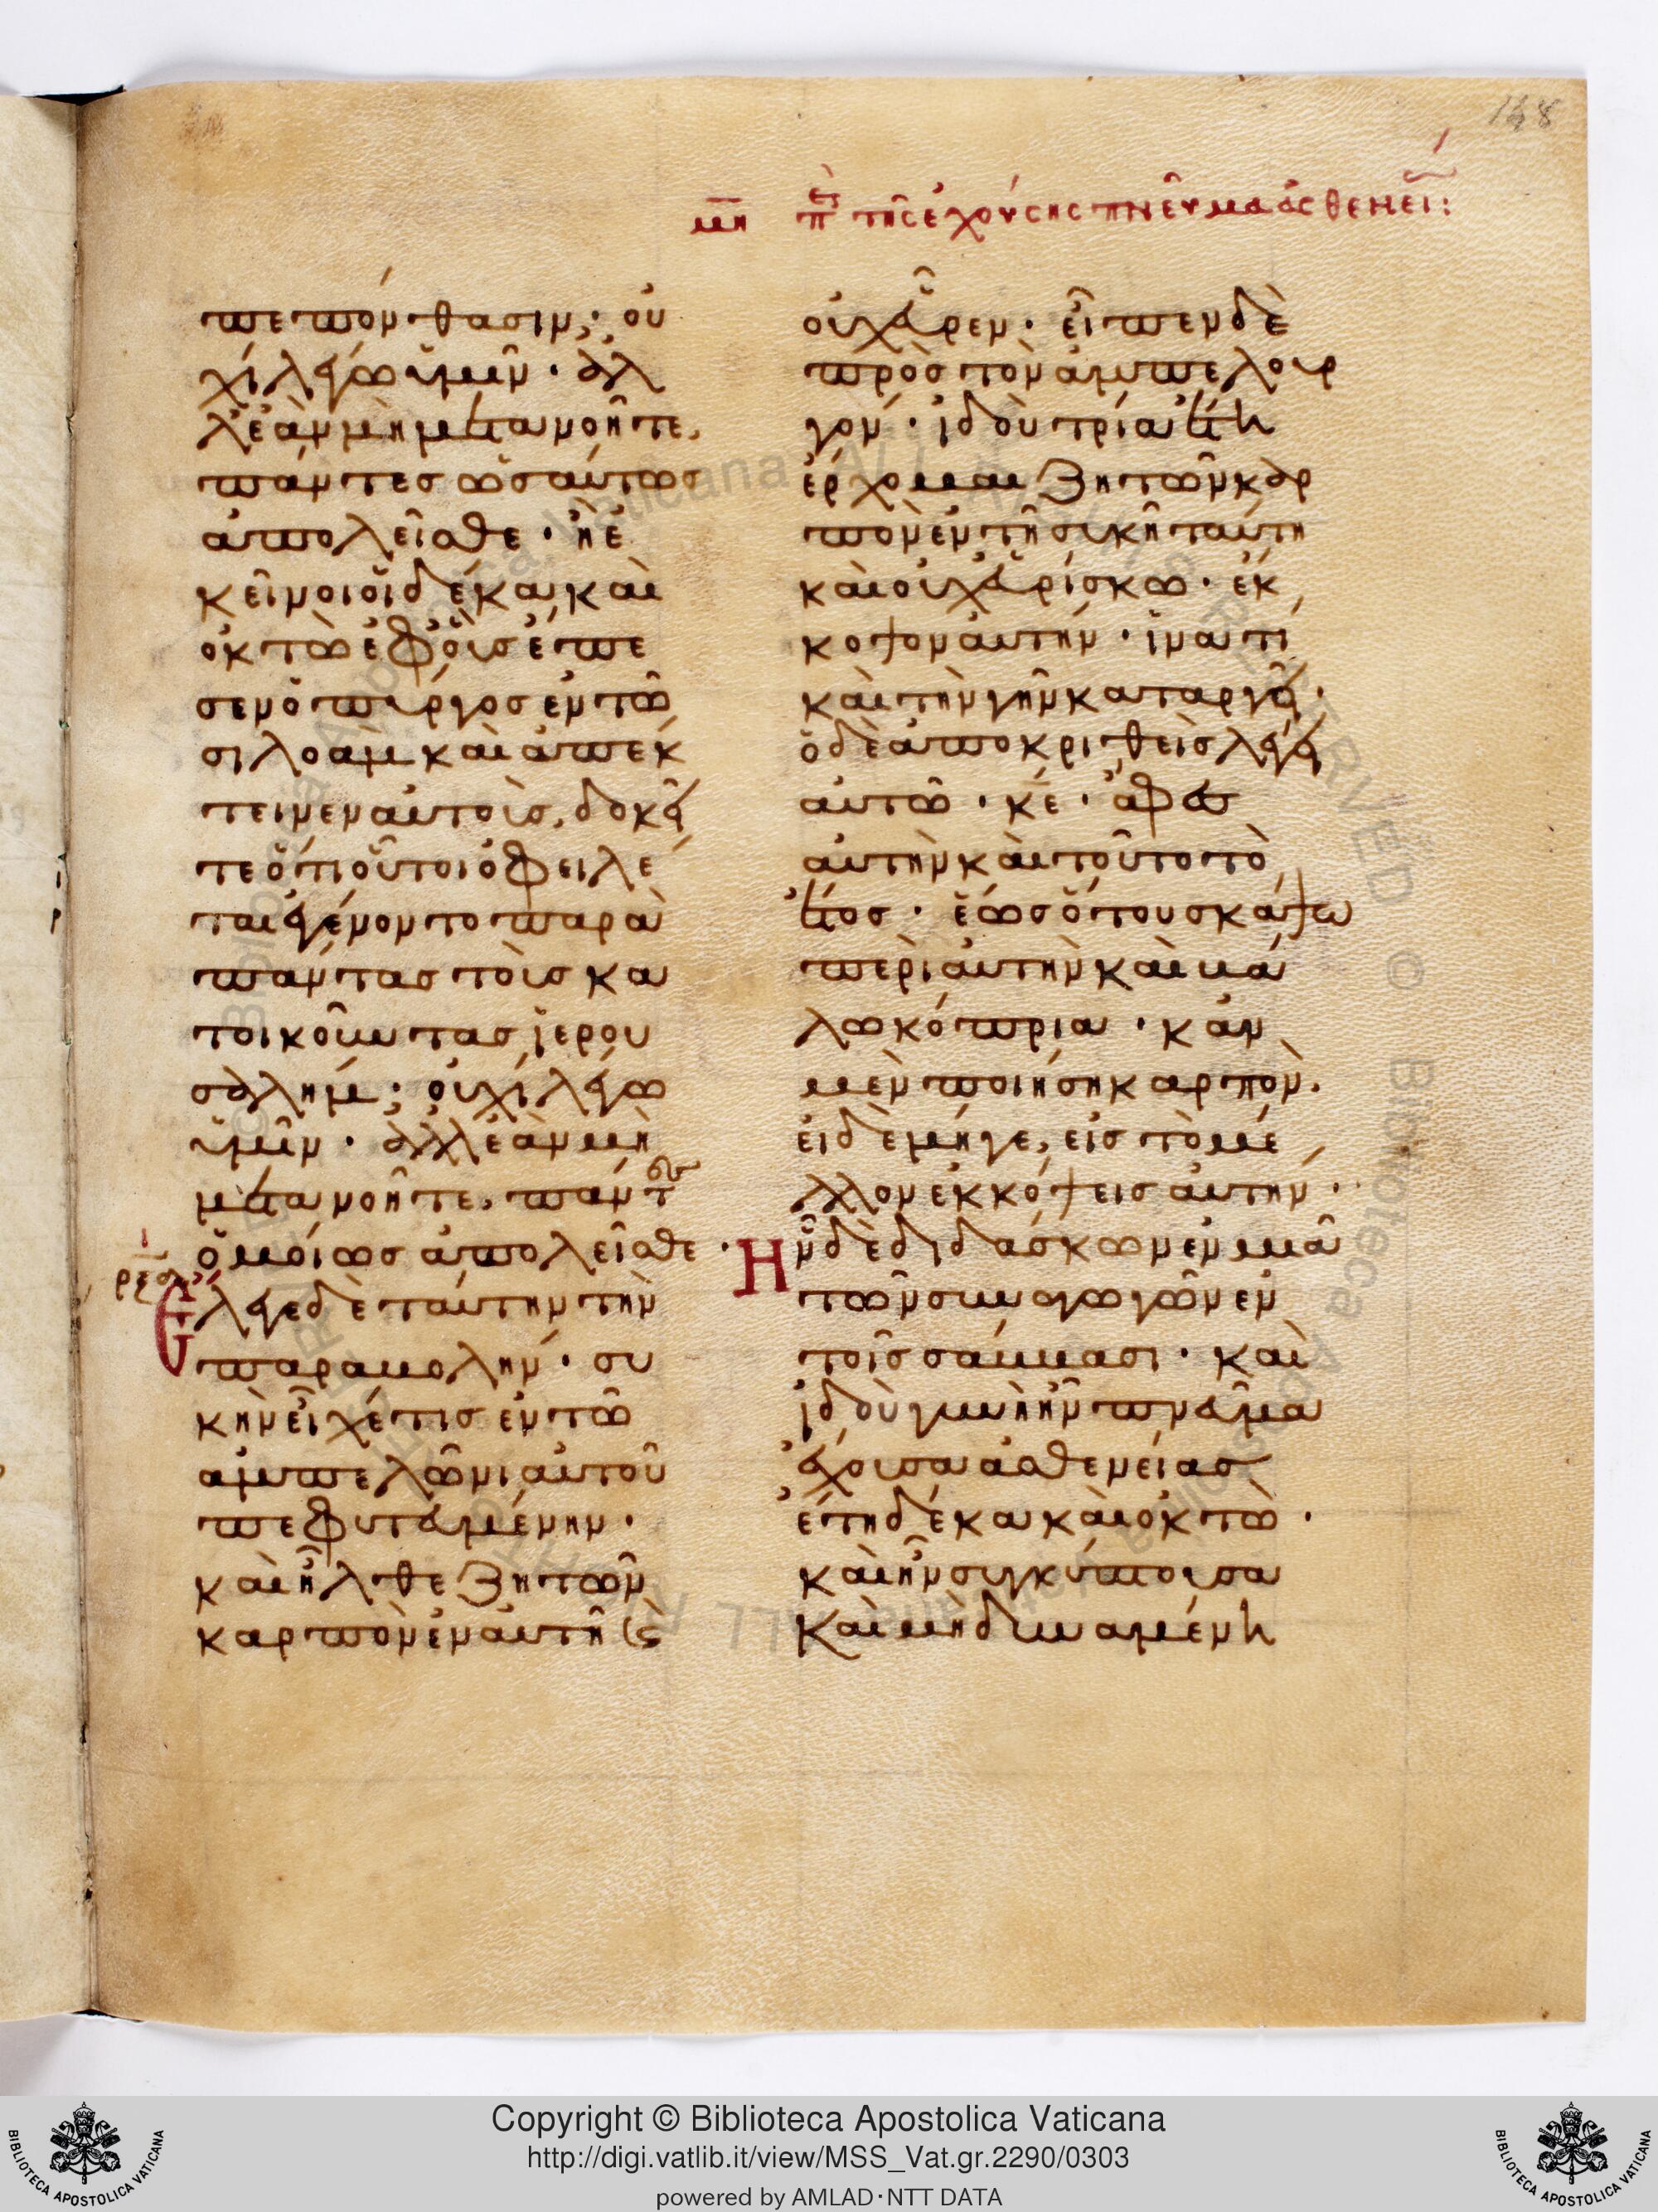 148
μη πε τῆς ἐχούσης πνεῦμα ἀσθενεί:
πεπόνθασιν; οὐ
χί λέγω ὑμῖν· ἀλ
λ ἐὰν μὴ μετανοῆτε,
πάντες ὡσαύτως
ἀπολεῖσθε· ἢ ἐ
κεῖνοι οἱ δέκα καὶ
ὀκτὼ ἐφ οὓς ἔπε
σεν ὁ πύργος ἐν τῶ
σιλοὰμ καὶ ἀπέκ
τεινεν αὐτοὺς, δοκεῖ
τε ὅτι οὗτοι ὀφειλέ
ται ἐγένοντο παρὰ
πάντας τοὺς κα
τοικοῦντας ἱερου
σαλήμ; οὐχί λέγω
ὑμῖν· ἀλλ ἐὰν μὴ
μετανοῆτε, πάντες
ὁμοίως ἀπολεῖσθε·
Ἔλεγε δὲ ταύτην τὴν
παραβολήν· συ
κῆν εἶχέ τις ἐν τῶ
ἀμπελῶνι αὐτοῦ
πεφυτευμένην·
καὶ ἦλθε ζητῶν
καρπὸν ἐν αὐτῆ ϗ
οὐχ εὗρεν· εἶπεν δὲ
πρὸς τὸν ἀμπελουρ
γόν· ἰδοὺ τρία ἔτη
ἔρχομαι ζητῶν καρ
πὸν ἐν τῆ συκῆ ταύτη
καὶ οὐχ εὑρίσκω· ἔκ
κοψον αὐτήν· ἱνατί
καὶ τὴν γῆν καταργεῖ·
ὁ δὲ ἀποκριθεὶς λέγει
αὐτῶ· κε· ἄφες
αὐτὴν καὶ τοῦτο τὸ
ἔτος· ἕως ὅτου σκάψω
περὶ αὐτὴν καὶ βά
λω κόπρια· κἂν
μὲν ποιήση καρπὸν·
εἰ δὲ μήγε, εἰς τὸ μέ
λλον ἐκκόψεις αὐτήν·
Ἦν δὲ διδάσκων ἐν μιᾶ
τῶν συναγωγῶν ἐν
τοῖς σάββασι· καὶ
ἰδοὺ γυνὴ ἦν πνεῦμα
ἔχουσα ἀσθενείας
ἔτη δέκα καὶ ὀκτὼ·
καὶ ἦν συγκύπτουσα
καὶ μὴ δυναμένη
Copyright © Biblioteca Apostolica Vaticana
http://digi.vatlib.it/view/MSS_Vat.gr.2290/0303
powered by AMLAD·NTT DATA
BIBLIOTECA APOSTOLICA VATICANA
BIBLIOTECA APOSTOLICA VATICANA